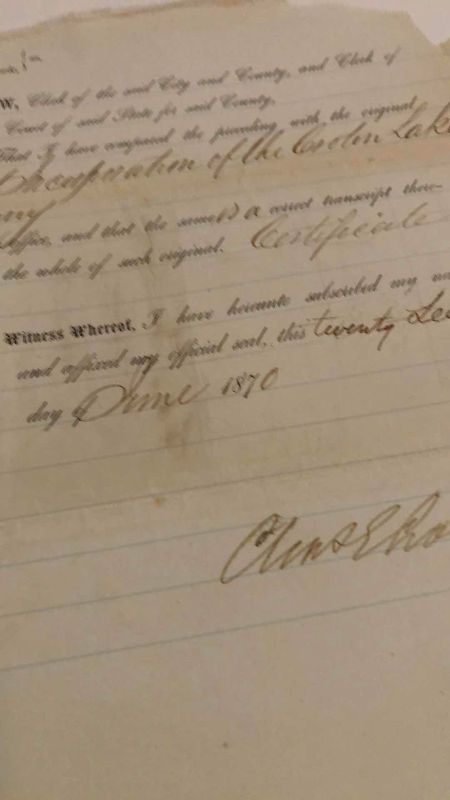 W, Clerk of the said City and County, and Clerk of
Court of said State for said County,
That I have compared the preceding with the original
Incorporation of the Croton Lake
ny
office, and that the same is a correct transcript there-
the whole of such original. Certificate
Witness Whereof, I have hereunto subscribed my na
and affixed my official seal, this twenty Se
day of June 1870
Chas E